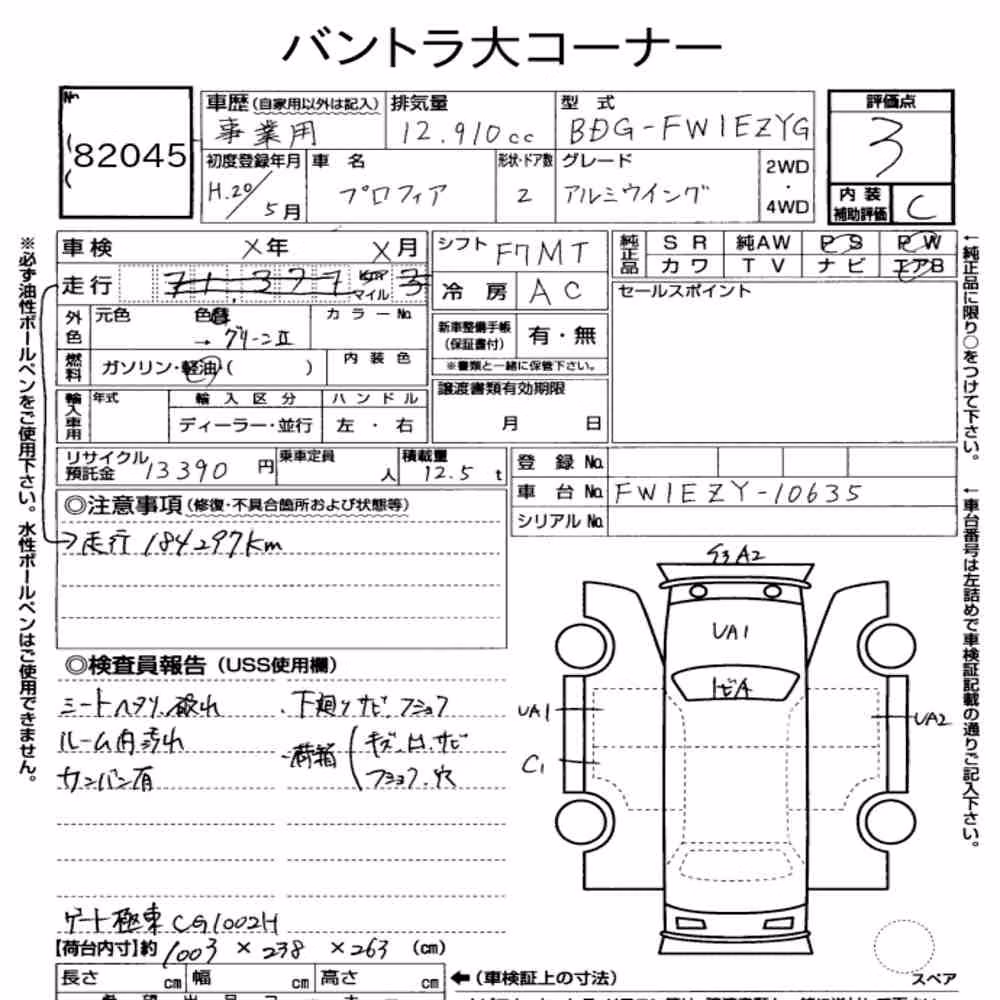 バントラ大コーナー
No 82045
車歴(自家用以外は記入) 排気量 型 式 評価点
事業用 12,910cc BDG-FW1EZYG 3
初度登録年月 車 名 形状・ドア数 グレード 2WD・4WD
H.20/5月 プロフィア 2 アルミウイング
内装補助評価 C
車検 X年 X月 シフト F7MT
純正品 SR 純AW PS PW
カワ TV ナビ エアB
走行 71,377 マイル 3
冷房 AC
セールスポイント
外色 元色 色替 カラーNo.
→グリーンII
新車整備手帳(保証書付) 有・無
※書類と一緒に保管下さい。
燃料 ガソリン・軽油( ) 内装色
譲渡書類有効期限
月 日
輸入車用 年式 輸入区分 ハンドル
ディーラー・並行 左・右
リサイクル預託金 13390円 乗車定員 人 積載量 12.5t
登録No.
車台No. FW1EZY-10635
シリアルNo.
◎注意事項(修復・不具合箇所および状態等)
→走行 184297km
◎検査員報告(USS使用欄)
シートヘタリ、破れ 下廻りサビ、フショク
ルーム内汚れ 荷箱(キズ、凹、サビ
カンバン有 フショク、穴
ゲート極東 CG1002H
【荷台内寸】約 1003 × 238 × 263 (cm)
長さ cm 幅 cm 高さ cm ←(車検証上の寸法)
G3 A2
UA1
トビA
UA1
UA2
C1
スペア
※必ず油性ボールペンをご使用下さい。水性ボールペンはご使用できません。
←純正品に限り○をつけて下さい。
←車台番号は左詰めで車検証記載の通りご記入下さい。